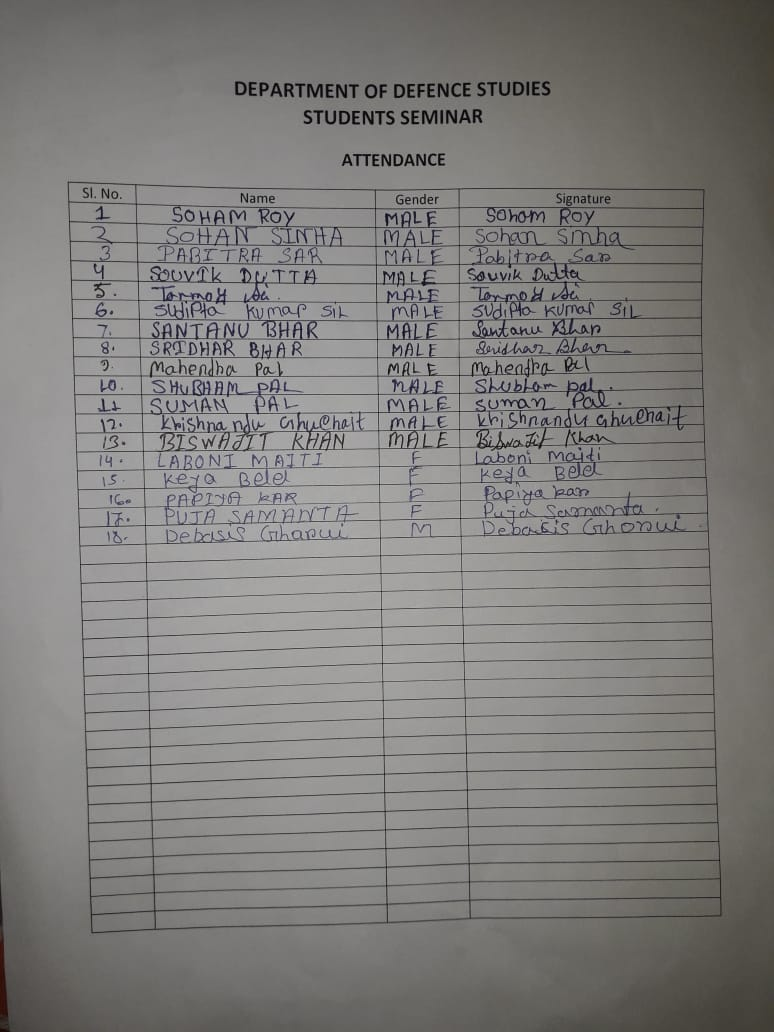 DEPARTMENT OF DEFENCE STUDIES
STUDENTS SEMINAR
ATTENDANCE
Sl. No. Name Gender Signature
1 SOHAM ROY MALE Soham Roy
2 SOHAN SINHA MALE Sohan Sinha
3 PABITRA SAR MALE Pabitra Sar
4 SOUVIK DUTTA MALE Souvik Dutta
5. MALE
6. Sudipta Kumar SiL MALE Sudipta Kumar SiL
7. SANTANU BHAR MALE Santanu Bhar
8. SRIDHAR BHAR MALE Sridhar Bhar
9. Mahendra Pal MALE Mahendra Pal
10. SHUBHAM PAL MALE Shubham pal.
11 SUMAN PAL MALE suman Pal.
12. Krishnandu Ghuchait MALE Krishnandu Ghuchait
13. BISWAJIT KHAN MALE Biswajit Khan
14. LABONI MAITI F Laboni Maiti
15. Keya Beled F Keya Beled
16. PAPIYA KAR F Papiya kar
17. PUJA SAMANTA F Puja Samanta.
18. Debasis Ghorui M Debasis Ghorui.